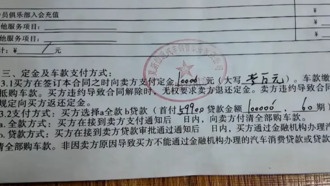 员俱乐部入会充值
他服务项目:
他服务项目:
计: ¥
三、定金及车款支付方式:
3.1买方在签订本合同之时向卖方支付定金 10000 元(大写 壹万元)。车款缴
抵购车款。买方违约导致合同解除时,无权要求卖方退还定金。卖方违约导致合同
规定向买方返还定金。
3.2支付方式:买方选择a全款 b贷款(首付 59900 贷款金额 100000 , 60 期
a. 全款方式:买方在接到卖方支付通知后 日内,向卖方付清全部购车款。
b. 贷款方式:买方在接到卖方贷款审批通过通知后 日内,买方通过金融机构办理汽
清全部购车款。非因卖方原因导致买方不能通过金融机构办理的汽车消费贷款或贷款